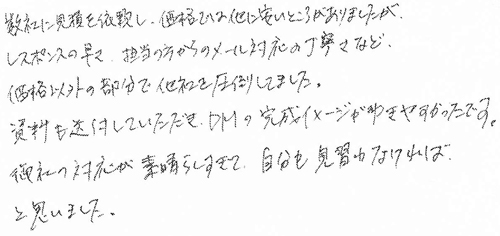 数社に見積を依頼し、価格では他に安いところがありましたが、
レスポンスの早さ、担当の方からのメール対応の丁寧さなど、
価格以外の部分で他社を圧倒してました。
資料も送付していただき、DMの完成イメージがわきやすかったです。
御社の対応が素晴らしすぎて、自分も見習わなければ、
と思いました。